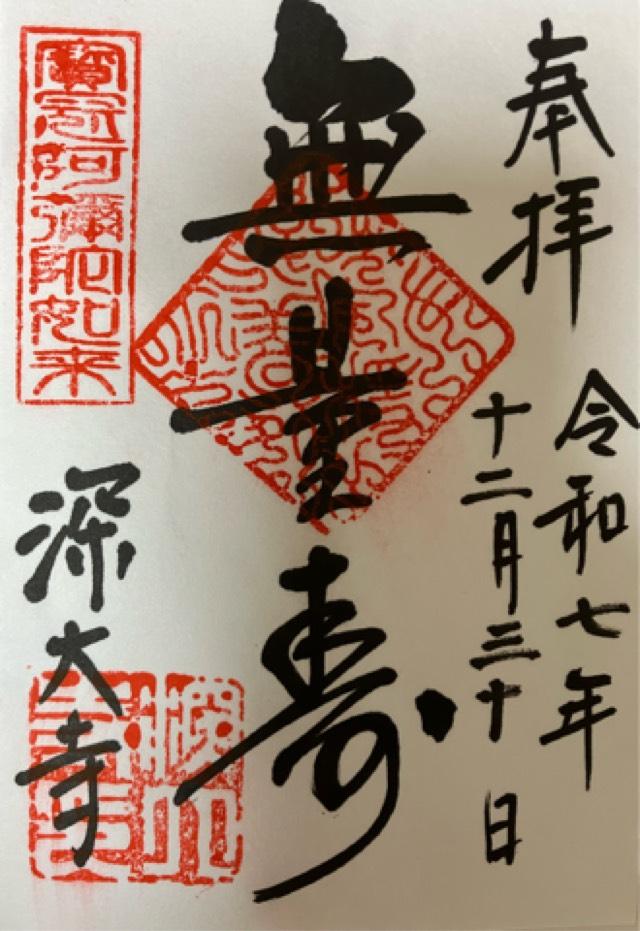 奉拝
令和七年
十二月三十日
無量寿
寳冠阿彌陀如来
深大寺